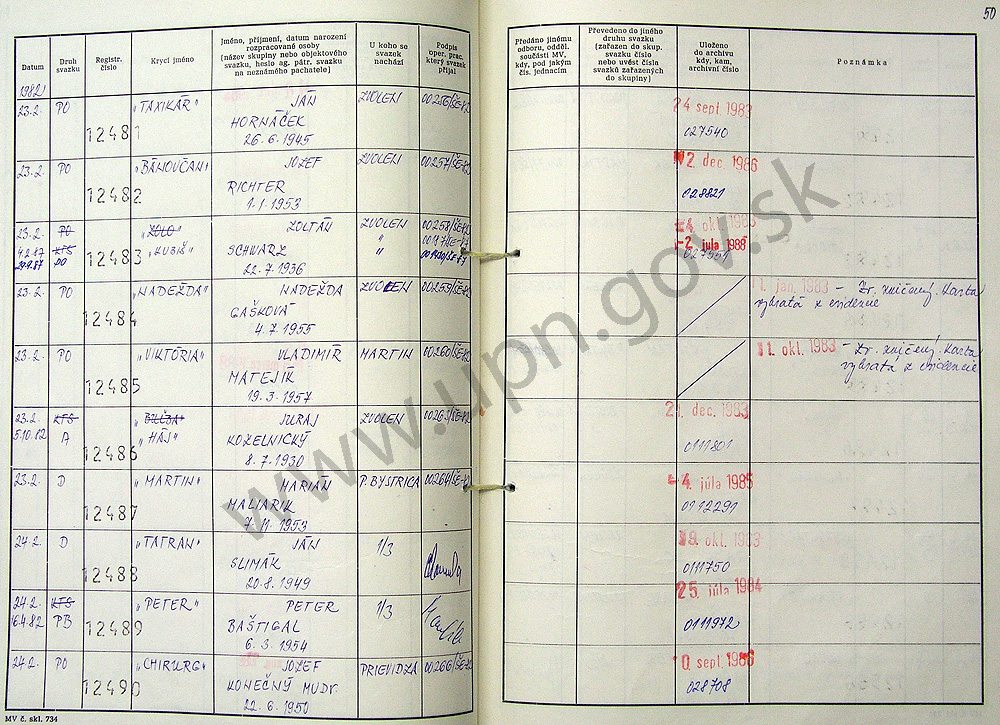 50
Datum
Druh svazku
Registr. číslo
Krycí jméno
Jméno, příjmení, datum narození
rozpracované osoby
(název skupiny nebo objektového
svazku, heslo ag. pátr. svazku
na neznámého pachatele)
U koho se
svazek
nachází
Podpis
oper. prac.
který svazek
přijal
Předáno jinému
odboru, odděl.
součásti MV,
kdy, pod jakým
čís. jednacím
Převedeno do jiného
druhu svazku
(zařazen do skup.
svazku číslo
nebo uvést čísla
svazků zařazených
do skupiny)
Uloženo
do archivu
kdy, kam,
archivní číslo
Poznámka
1982
23.2. PO 12481 "TAXIKÁR" JÁN ZVOLEN 24 sept. 1983
HORNÁČEK
26.6.1945 027540
23.2. PO 12482 "BÁNOVČAN" JOZEF ZVOLEN 2. dec. 1986
RICHTER
1.1.1953 028821
23.2. PO 12483 "ZOLO" ZOLTÁN ZVOLEN 4. okt. 1983
KTS "KUBIŠ" SCHWARZ " -2. júla 1988
PO 22.7.1936 "
23.2. PO 12484 "NADEŽDA" NADEŽDA ZVOLEN jan. 1983 – Zr. zničený. Karta
GAŠKOVÁ vybratá z evidencie
4.7.1955
23.2. PO 12485 "VIKTÓRIA" VLADIMÍR MARTIN 1. okt. 1983 – Zr. zničený. Karta
MATEJÍK vybratá z evidencie
19.3.1957
23.2. KTS 12486 JURAJ ZVOLEN 21. dec. 1983
5.10.82 A "HÁJ" KOZELNICKÝ
8.7.1930 0111801
23.2. D 12487 "MARTIN" MARIÁN P. BYSTRICA -4. júla 1985
MALIARIK
7.11.1953 0112291
24.2. D 12488 "TATRAN" JÁN 1/3 19. okt. 1983
SLIMÁK
20.8.1949 0111750
24.2. KTS 12489 "PETER" PETER 1/3 25. júla 1984
16.4.82 PB BAŠTIGAL
6.3.1954 0111972
24.2. PO 12490 "CHIRURG" JOZEF PRIEVIDZA 0. sept. 1986
KONEČNÝ MUDr.
22.6.1950 028708
MV č. skl. 734
www.upn.gov.sk